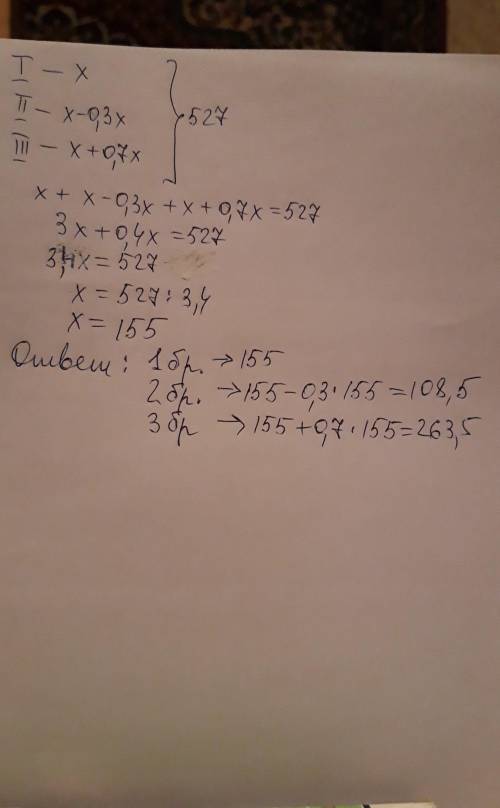 I — x
II — x-0,3x } 527
III — x+0,7x
x + x-0,3x + x + 0,7x = 527
3x + 0,4x = 527
3,4x = 527
x = 527 : 3,4
x = 155
Ответ : 1 бр. → 155
2 бр. → 155 - 0,3 · 155 = 108,5
3 бр → 155 + 0,7 · 155 = 263,5